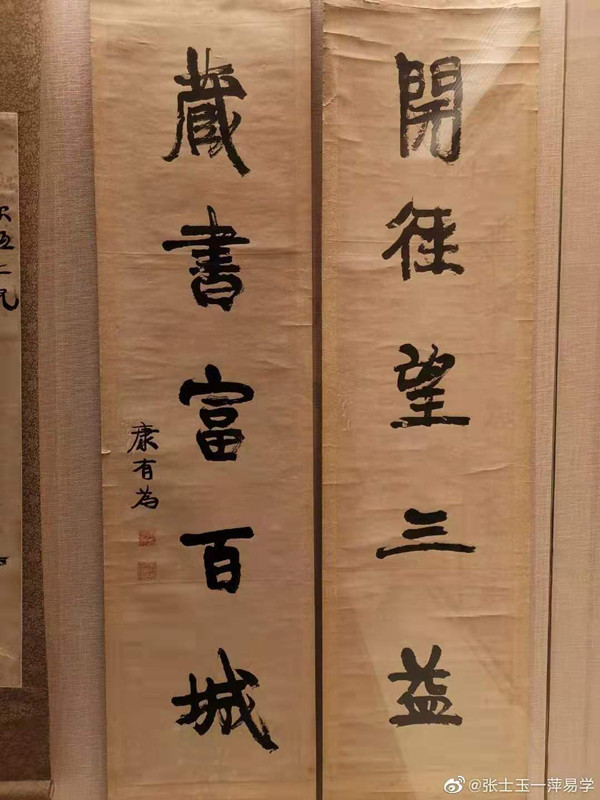 開徑望三益
藏書富百城
康有為
@张士玉一萍易学